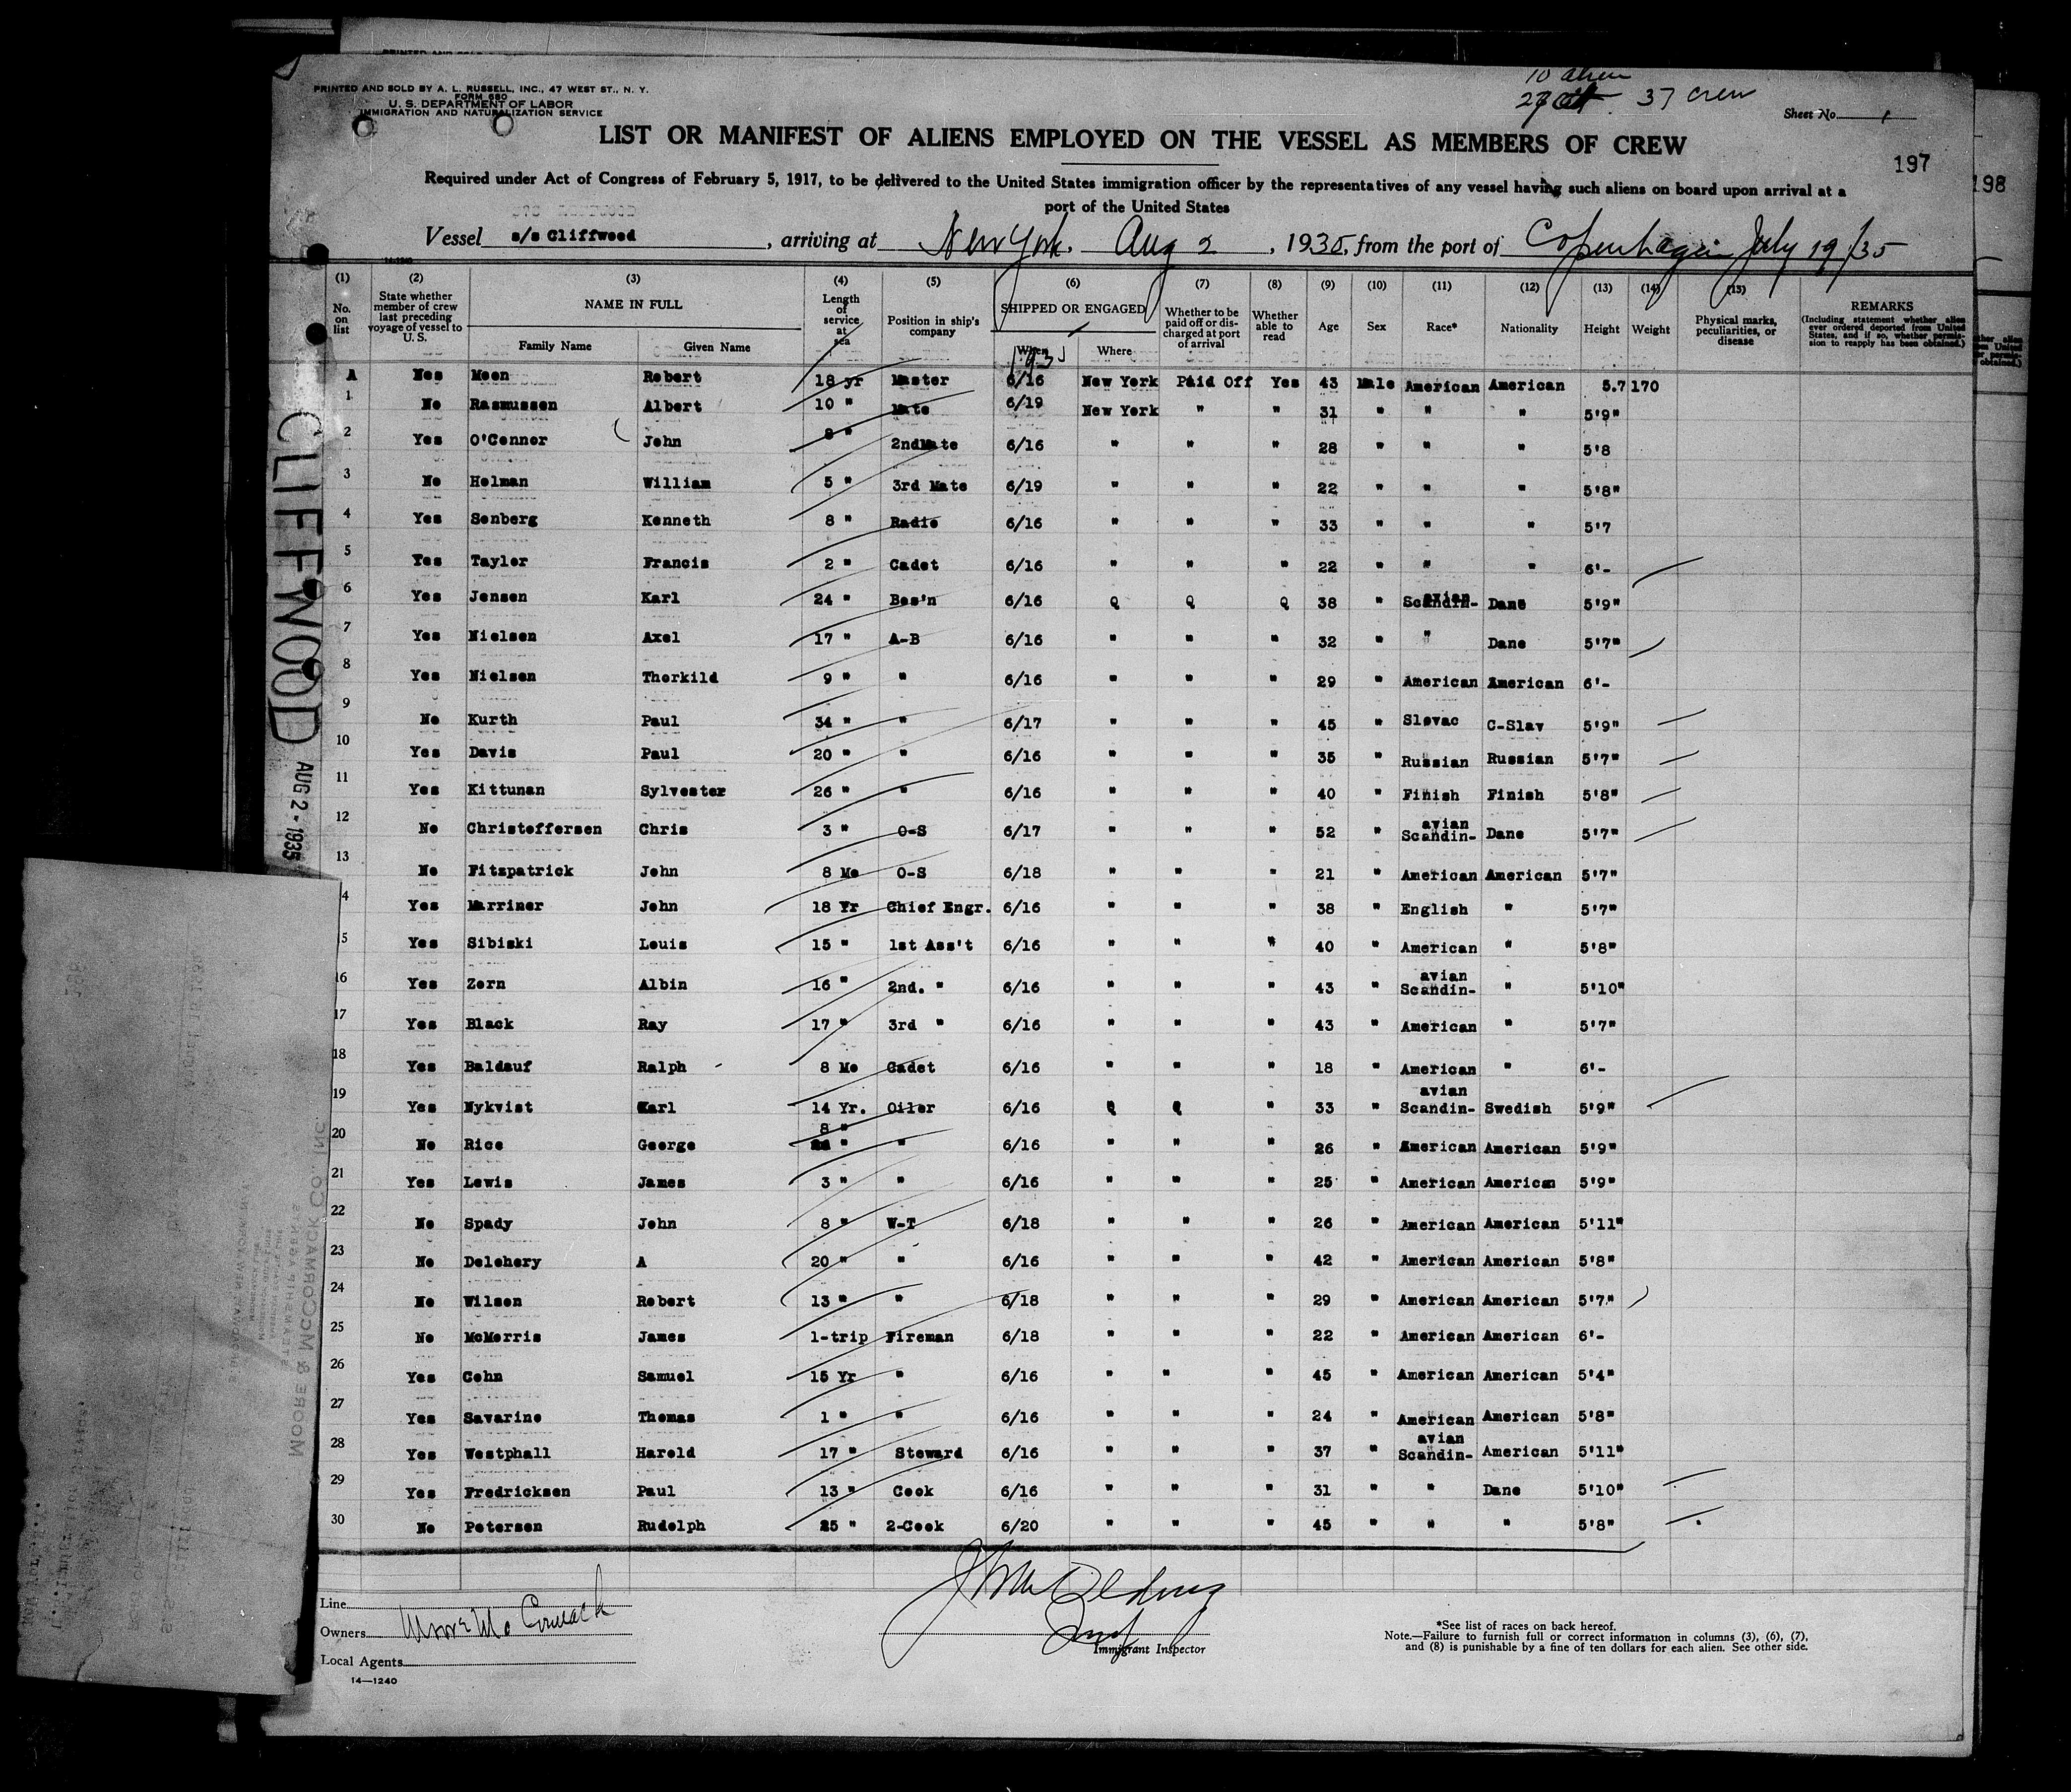 10 alien
27 cit. 37 crew
PRINTED AND SOLD BY A. L. RUSSELL, INC., 47 WEST ST., N. Y.
FORM 680
U. S. DEPARTMENT OF LABOR
IMMIGRATION AND NATURALIZATION SERVICE
Sheet No. 1
LIST OR MANIFEST OF ALIENS EMPLOYED ON THE VESSEL AS MEMBERS OF CREW
197
198
Required under Act of Congress of February 5, 1917, to be delivered to the United States immigration officer by the representatives of any vessel having such aliens on board upon arrival at a
port of the United States
Vessel s/s Cliffwood, arriving at New York. Aug 2, 1935, from the port of Copenhagen July 19/35
(1) (2) (3) (4) (5) (6) (7) (8) (9) (10) (11) (12) (13) (14) (15)
No. on list State whether member of crew last preceding voyage of vessel to U. S. NAME IN FULL Family Name Given Name Length of service at sea Position in ship's company SHIPPED OR ENGAGED When Where Whether to be paid off or discharged at port of arrival Whether able to read Age Sex Race* Nationality Height Weight Physical marks, peculiarities, or disease REMARKS (Including statement whether alien ever ordered deported from United States, and if so, whether permission to reapply has been obtained.)
1935
A Yes Moon Robert 18 yr Master 6/16 New York Paid Off Yes 43 Male American American 5.7 170
1 No Rasmussen Albert 10 " Mate 6/19 New York " " 31 " " " 5'9"
2 Yes O'Connor John 8 " 2ndMate 6/16 " " " 28 " " " 5'8
3 No Holman William 5 " 3rd Mate 6/19 " " " 22 " " " 5'8"
4 Yes Sonberg Kenneth 8 " Radio 6/16 " " " 33 " " " 5'7
5 Yes Taylor Francis 2 " Cadet 6/16 " " " 22 " " " 6'-
6 Yes Jensen Karl 24 " Bos'n 6/16 Q Q Q 38 " Scandin-avian Dane 5'9"
7 Yes Nielsen Axel 17 " A-B 6/16 " " " 32 " " Dane 5'7"
8 Yes Nielsen Thorkild 9 " " 6/16 " " " 29 " American American 6'-
9 No Kurth Paul 34 " " 6/17 " " " 45 " Slovac C-Slav 5'9"
10 Yes Davis Paul 20 " " 6/16 " " " 35 " Russian Russian 5'7"
11 Yes Kittunan Sylvester 26 " " 6/16 " " " 40 " Finish Finish 5'8"
12 No Christoffersen Chris 3 " O-S 6/17 " " " 52 " Scandin-avian Dane 5'7"
13 No Fitzpatrick John 8 Mo O-S 6/18 " " " 21 " American American 5'7"
4 Yes Marriner John 18 Yr Chief Engr. 6/16 " " " 38 " English " 5'7"
5 Yes Sibiski Louis 15 " 1st Ass't 6/16 " " " 40 " American " 5'8"
16 Yes Zorn Albin 16 " 2nd. " 6/16 " " " 43 " Scandin-avian " 5'10"
17 Yes Black Ray 17 " 3rd " 6/16 " " " 43 " American " 5'7"
18 Yes Baldauf Ralph 8 Mo Cadet 6/16 " " " 18 " American " 6'-
19 Yes Nykvist Karl 14 Yr. Oiler 6/16 Q Q " 33 " Scandin-avian Swedish 5'9"
20 No Rice George 8 " " 6/16 " " " 26 " American American 5'9"
21 Yes Lewis James 3 " " 6/16 " " " 25 " American American 5'9"
22 No Spady John 8 " W-T 6/18 " " " 26 " American American 5'11"
23 No Delohery A 20 " " 6/16 " " " 42 " American American 5'8"
24 No Wilson Robert 13 " " 6/18 " " " 29 " American American 5'7"
25 No McMorris James 1-trip Fireman 6/18 " " " 22 " American American 6'-
26 Yes Cohn Samuel 15 Yr " 6/16 " " " 45 " American American 5'4"
27 Yes Savarino Thomas 1 " " 6/16 " " " 24 " American American 5'8"
28 Yes Westphall Harold 17 " Steward 6/16 " " " 37 " Scandin-avian American 5'11"
29 Yes Fredricksen Paul 13 " Cook 6/16 " " " 31 " " Dane 5'10"
30 No Petersen Rudolph 25 " 2-Cook 6/20 " " " 45 " " " 5'8"
CLIFFWOOD AUG 2 - 1935
MOORE & McCORMACK Co. INC
Line
Owners Moore Mc Cormack
Local Agents
14—1240
Immigrant Inspector
*See list of races on back hereof.
Note.—Failure to furnish full or correct information in columns (3), (6), (7),
and (8) is punishable by a fine of ten dollars for each alien. See other side.